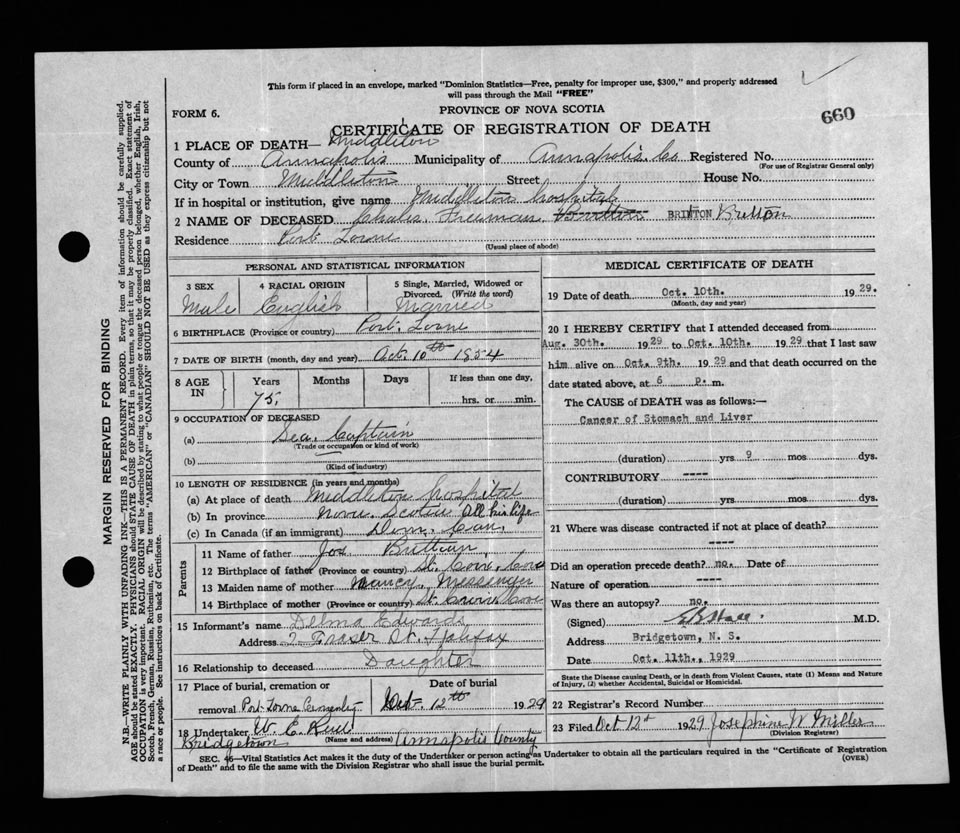 This form if placed in an envelope, marked "Dominion Statistics—Free, penalty for improper use, $300," and properly addressed
will pass through the Mail "FREE"
660
FORM 6.
PROVINCE OF NOVA SCOTIA
CERTIFICATE OF REGISTRATION OF DEATH
1 PLACE OF DEATH— Middleton
County of Annapolis Municipality of Annapolis Co Registered No.
(For use of Registrar General only)
City or Town Middleton Street House No.
If in hospital or institution, give name Middleton hospital
2 NAME OF DECEASED Freeman BRINTON
Residence Port Lorne
(Usual place of abode)
PERSONAL AND STATISTICAL INFORMATION
3 SEX 4 RACIAL ORIGIN 5 Single, Married, Widowed or
Divorced. (Write the word)
Male English Married
6 BIRTHPLACE (Province or country) Port Lorne
7 DATE OF BIRTH (month, day and year) Oct 10th 1854
8 AGE IN Years Months Days If less than one day,
75 hrs. or min.
9 OCCUPATION OF DECEASED
(a) Sea Captain
(Trade or occupation or kind of work)
(b)
(Kind of industry)
10 LENGTH OF RESIDENCE (in years and months)
(a) At place of death Middleton hospital
(b) In province Nova Scotia All his life
(c) In Canada (if an immigrant) Dom. Can.
Parents
11 Name of father Jos
12 Birthplace of father (Province or country) St.
13 Maiden name of mother Nancy Messenger
14 Birthplace of mother (Province or country) St.
15 Informant's name Delma Edwards
Address 2 Fraser St. Halifax
16 Relationship to deceased Daughter
17 Place of burial, cremation or Date of burial
removal Port Lorne Cemetery Oct 12th 1929
18 Undertaker W. E. Reed
Bridgetown (Name and address) Annapolis County
MEDICAL CERTIFICATE OF DEATH
19 Date of death Oct. 10th. 1929.
(Month, day and year)
20 I HEREBY CERTIFY that I attended deceased from
Aug. 30th. 1929 to Oct. 10th. 1929 that I last saw
him alive on Oct. 9th. 1929 and that death occurred on the
date stated above, at 6 p. m.
The CAUSE of DEATH was as follows:—
Cancer of Stomach and Liver
(duration) yrs 9 mos dys.
CONTRIBUTORY ----
(duration) yrs. mos. dys.
21 Where was disease contracted if not at place of death?
----
Did an operation precede death? no. Date of
Nature of operation ----
Was there an autopsy? no.
(Signed) M.D.
Address Bridgetown, N. S.
Date Oct. 11th., 1929
State the Disease causing Death, or in death from Violent Causes, state (1) Means and Nature
of Injury, (2) whether Accidental, Suicidal or Homicidal.
22 Registrar's Record Number
23 Filed Oct 12th 1929 Josephine W Miller
(Division Registrar)
SEC. 46—Vital Statistics Act makes it the duty of the Undertaker or person acting as Undertaker to obtain all the particulars required in the "Certificate of Registration
of Death" and to file the same with the Division Registrar who shall issue the burial permit.
(OVER)
MARGIN RESERVED FOR BINDING
N.B.—WRITE PLAINLY WITH UNFADING INK—THIS IS A PERMANENT RECORD. Every item of information should be carefully supplied.
AGE should be stated EXACTLY. PHYSICIANS should STATE CAUSE OF DEATH in plain terms, so that it may be properly classified. Exact statement of
OCCUPATION is very important. RACIAL ORIGIN will be described by stating to what people or tongue the deceased person belonged, whether English, Irish,
Scotch, French, German, Russian, Ruthenian, etc. The terms "AMERICAN" or "CANADIAN" SHOULD NOT BE USED as they express citizenship but not
a race or people. See instructions on back of Certificate.